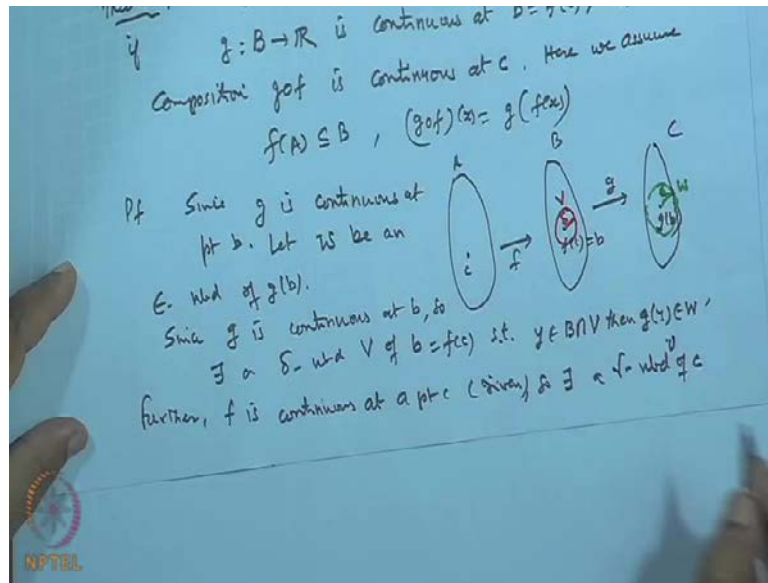 if g : B → R is continuous at b = f(c),
Composition gof is continuous at c. Here we assume
f(A) ⊆ B , (gof)(x) = g(f(x))
A B C
Pf Since g is continuous at
pt b. Let W be an
V g W
c f f(c)=b g(b)
ε- nbd of g(b).
Since g is continuous at b, so
∃ a δ- nbd V of b = f(c) s.t. y ∈ B∩V then g(y) ∈ W.
further, f is continuous at a pt c (given) so ∃ a γ- nbd U of c
NPTEL